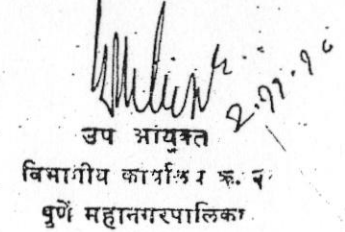 २.११.१०
उप आयुक्त
विभागीय कार्यालय क्र. २
पुणें महानगरपालिका